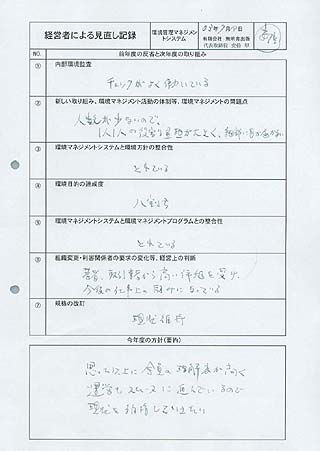 経営者による見直し記録
環境管理マネジメントシステム
有限会社
代表取締役
NO.
前年度の反省と次年度の取り組み
① 内部環境監査
チェックがよく働いている
② 新しい取り組み、環境マネジメント活動の体制等、環境マネジメントの問題点
人数が少ないので、
1人1人の役割
③ 環境マネジメントシステムと環境方針の整合性
とれている
④ 環境目的の達成度
⑤ 環境マネジメントシステムと環境マネジメントプログラムとの整合性
とれている
⑥ 組織変更・利害関係者の要求の変化等、経営上の判断
取引書から高い評価を受け、
今後の仕事上の励みになっている
⑦ 規格の改訂
現状維持
今年度の方針(要約)
思った以上に全員の理解度が高く
運営もスムースに進んでいるので
現状を維持していきたい